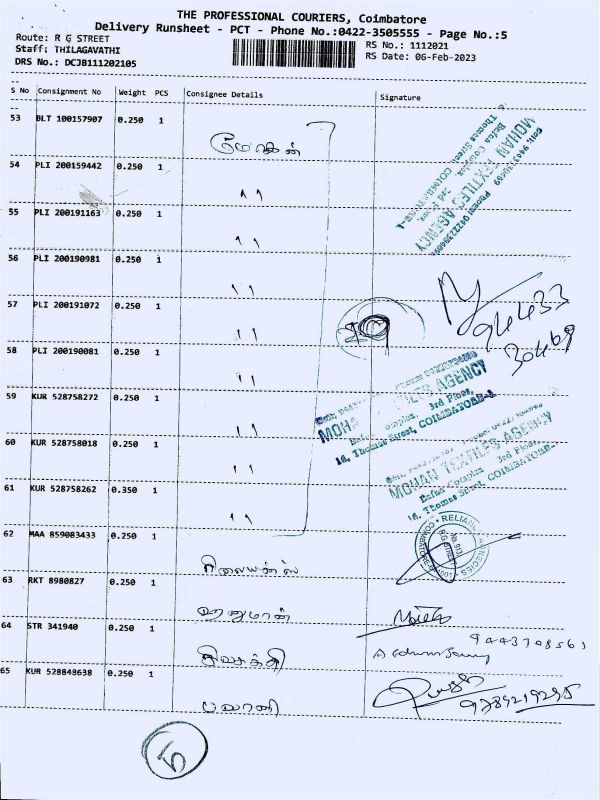 THE PROFESSIONAL COURIERS, Coimbatore
Delivery Runsheet - PCT - Phone No.:0422-3505555 - Page No.:5
Route: R G STREET
RS No.: 1112021
Staff: THILAGAVATHI
RS Date: 06-Feb-2023
DRS No.: DCJB111202105
S No Consignment No Weight PCS Consignee Details Signature
53 BLT 100157907 0.250 1
மோகன்
54 PLI 200159442 0.250 1
55 PLI 200191163 0.250 1
56 PLI 200190981 0.250 1
57 PLI 200191072 0.250 1
94433
30469
58 PLI 200190081 0.250 1
59 KUR 528758272 0.250 1
MOHAN TEXTILES AGENCY
3rd Floor,
16, Thomas Street, COIMBATORE-1
60 KUR 528758018 0.250 1
MOHAN TEXTILES AGENCY
3rd Floor,
16, Thomas Street, COIMBATORE-
61 KUR 528758262 0.350 1
62 MAA 859083433 0.250 1
ரிலையன்ஸ்
63 RKT 8980827 0.250 1
ஹனுமான்
64 STR 341940 0.250 1
9443708561
சிவசக்தி
65 KUR 528848638 0.250 1
9789219295
பவானி
5